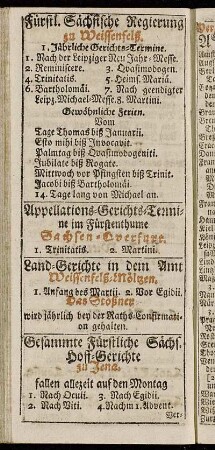 Fürstl. Sächsische Regierung
zu Weissenfelß.
1. Jährliche Gerichts-Termine.
1. Nach der Leipziger Neu Jahr-Messe.
2. Reminiscere. 3. Qvasimodogen.
4. Trinitatis. 5. Heims. Mariä.
6. Bartholomäi. 7. Nach geendigter
Leipz. Michael-Messe. 8. Martini.
Gewöhnliche Ferien.
Vom
Tage Thomas biß Januarii.
Esto mihi biß Invocavit.
Palmtag biß Qvasimodogeniti.
Jubilate biß Rogate.
Mittwoch vor Pfingsten biß Trinit.
Jacobi biß Bartholomäi.
14. Tage lang von Michael an.
Appellations-Gerichts-Termi-
ne im Fürstenthume
Sachsen-Qverfurt.
1. Trinitatis. 2. Martini.
Land-Gerichte in dem Amt
Weissenfelß-Möltzen.
1. Anfang des Martii. 2. Vor Egidii.
Das Stößner
wird jährlich bey der Raths-Confirmati-
on gehalten.
Gesammte Fürstliche Sächs.
Hoff-Gerichte
zu Jena.
fallen allezeit auf den Montag
1. Nach Oculi. 3. Nach Egidii.
2. Nach Viti. 4. Nachm 1. Advent.
Ver-